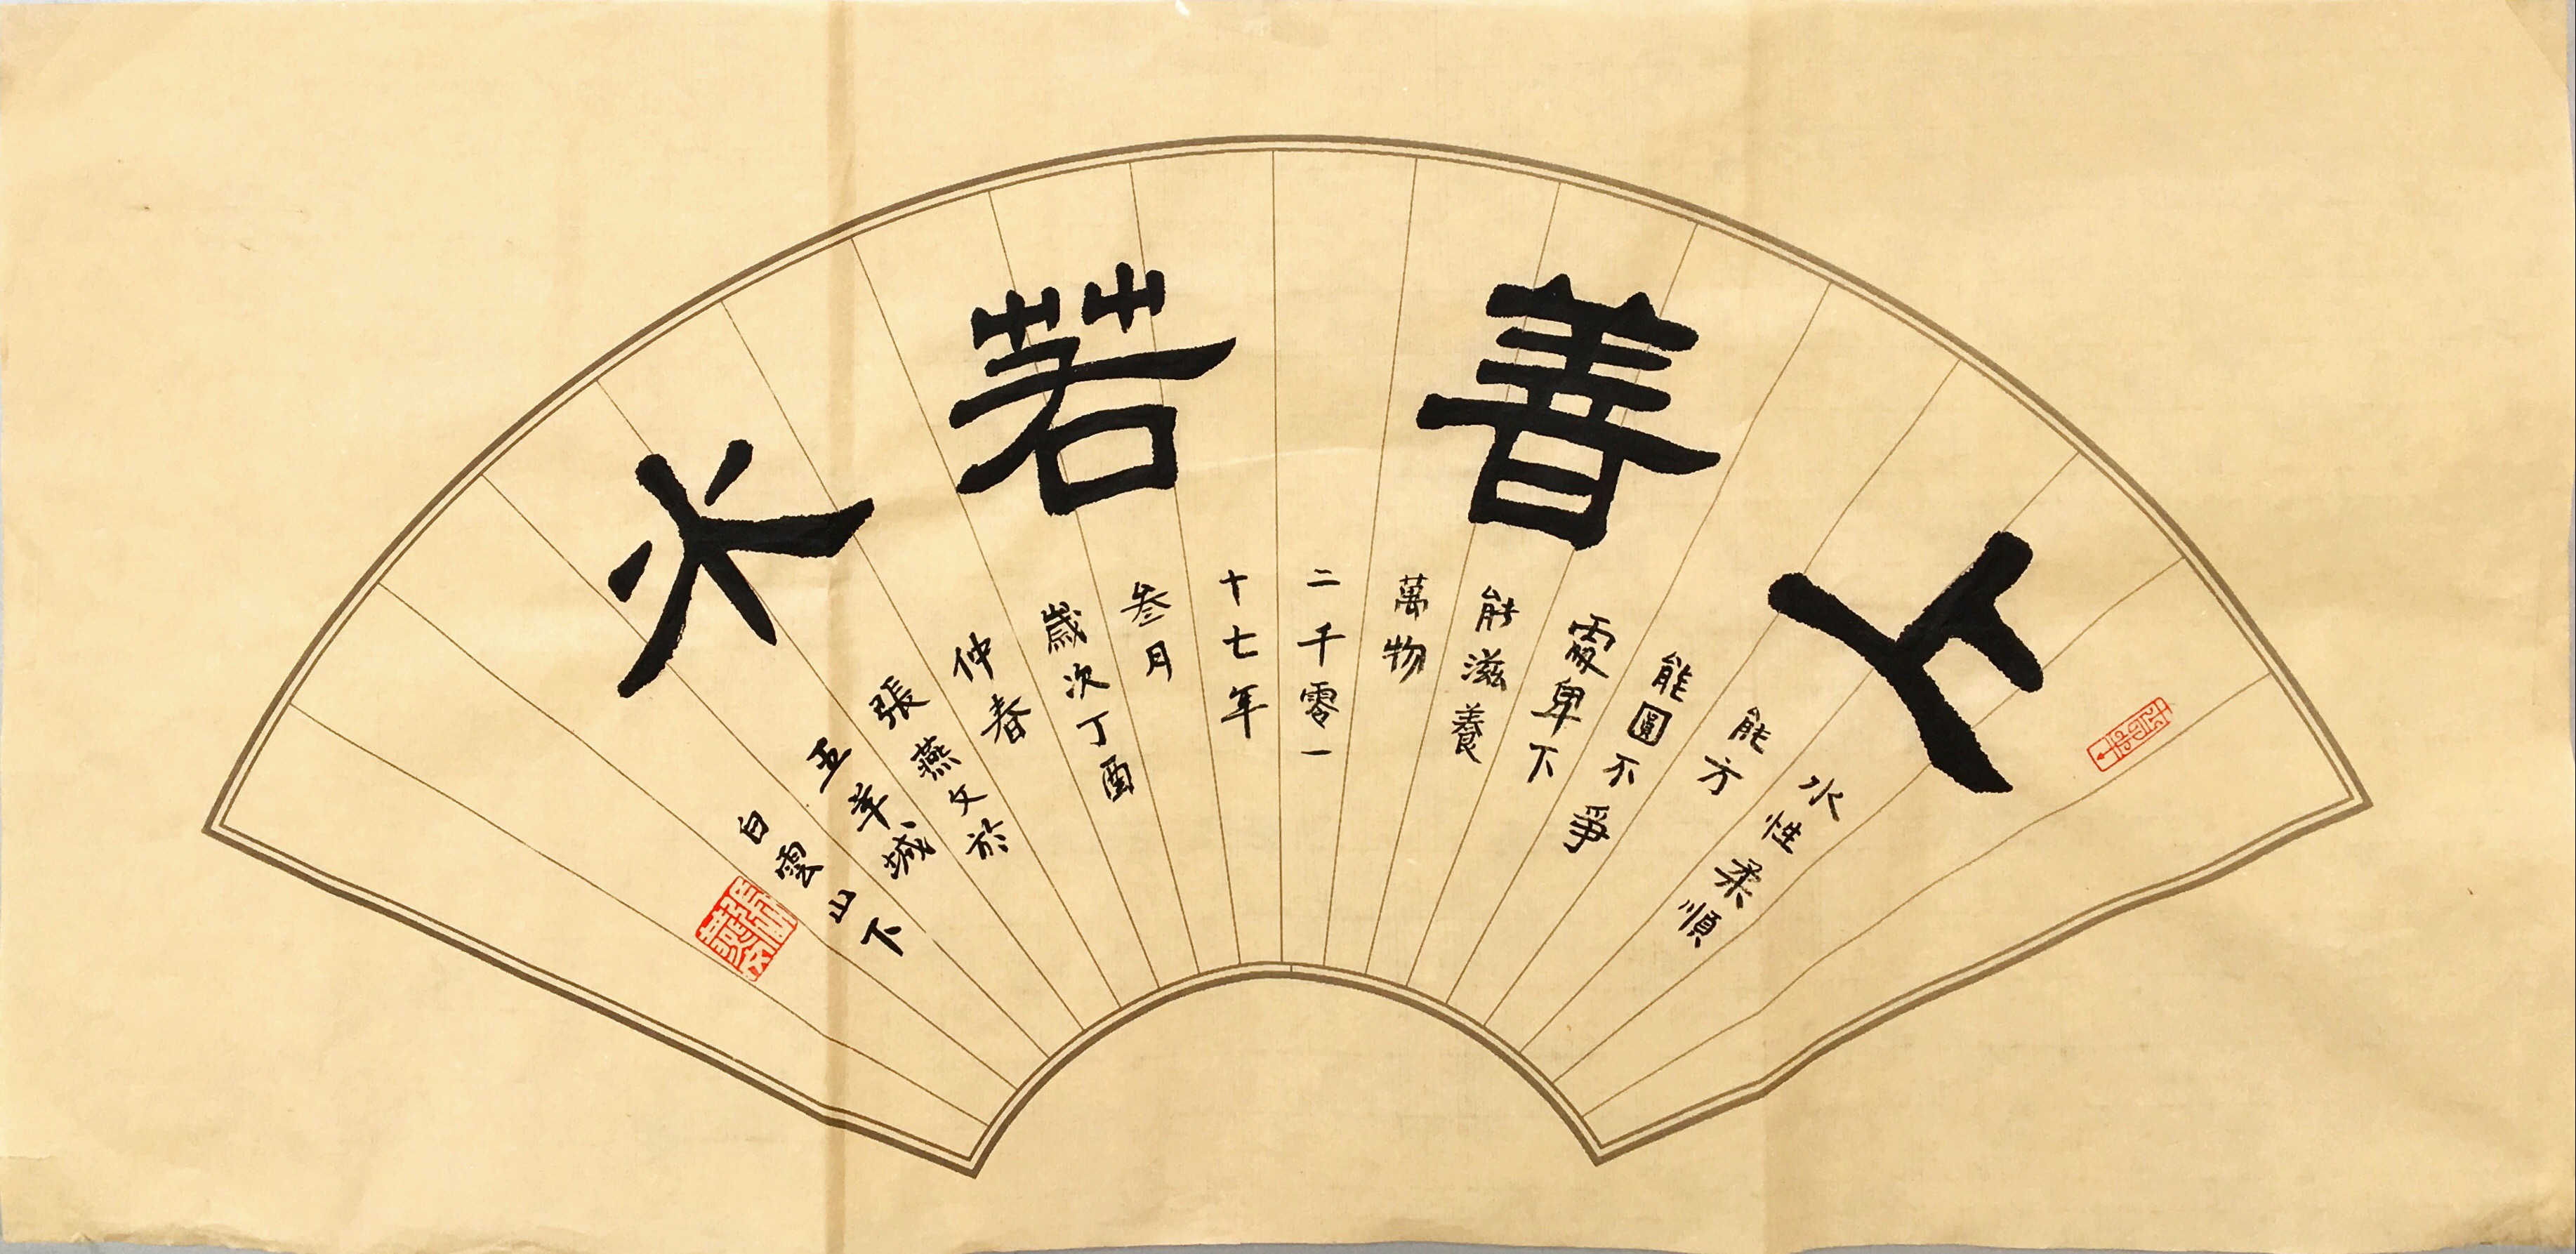 上善若水
水性柔順
能方
能圓不爭
處卑下
能滋養
萬物
二千零一
十七年
叁月
歲次丁酉
仲春
張燕文於
五羊城
白雲山下
張燕文